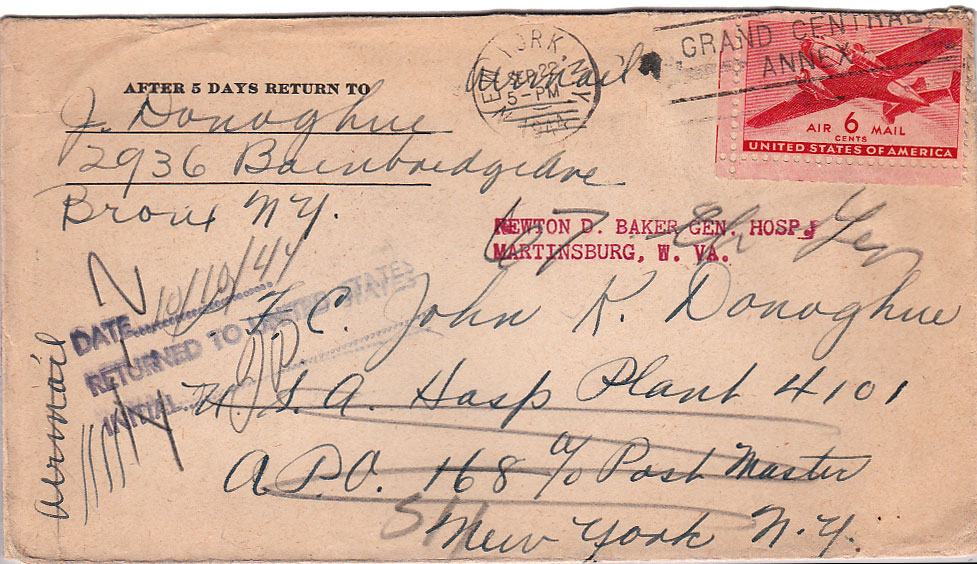 AFTER 5 DAYS RETURN TO
J. Donoghue
2936 Bainbridge Ave
Bronx N.Y.
NEW YORK, N.Y.
SEP 22
5-PM
1944
Airmail
GRAND CENTRAL
ANNEX
AIR 6 MAIL
CENTS
UNITED STATES OF AMERICA
NEWTON D. BAKER GEN. HOSP.
MARTINSBURG, W. VA.
67
N
DATE 10/10/44
RETURNED TO UNITED STATES
INITIAL
Airmail
P.F.C. John K. Donoghue
U.S.A. Hosp Plant 4101
A.P.O. 168 c/o Post Master
New York N.Y.